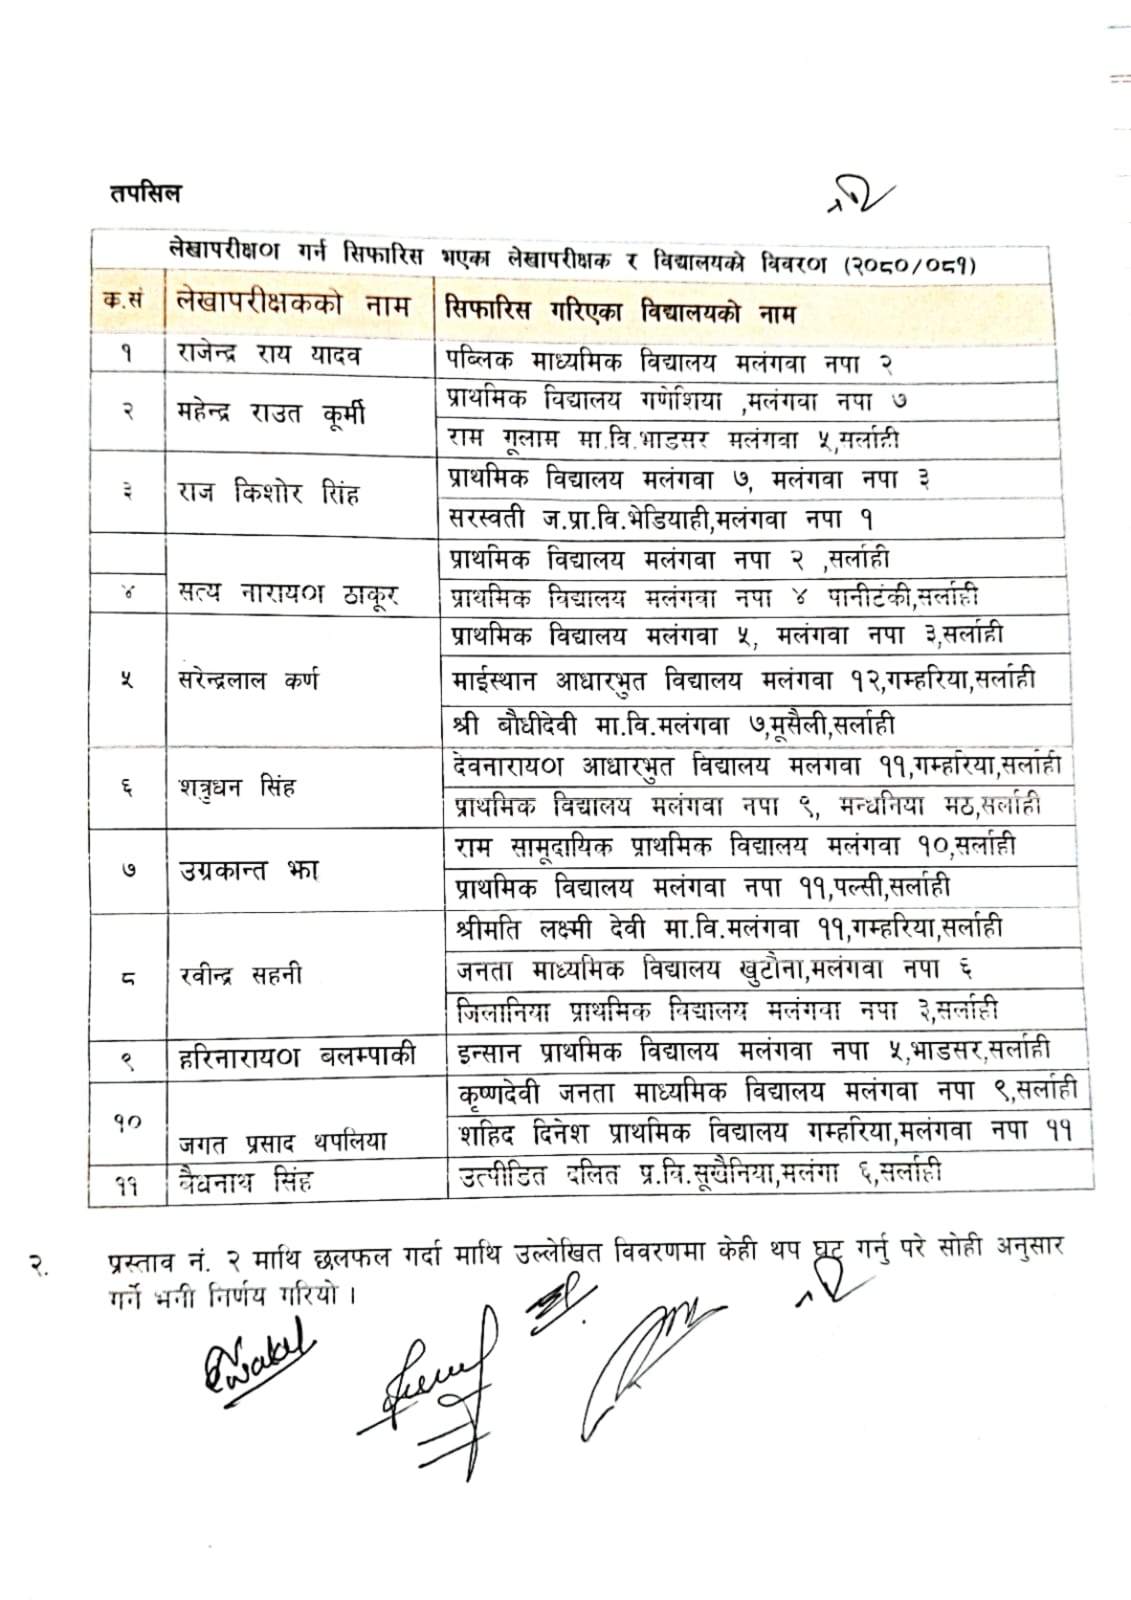 तपसिल
लेखापरीक्षण गर्न सिफारिस भएका लेखापरीक्षक र विद्यालयको विवरण (२०८०/०८१)
क.सं लेखापरीक्षकको नाम सिफारिस गरिएका विद्यालयको नाम
१ राजेन्द्र राय यादव पब्लिक माध्यमिक विद्यालय मलंगवा नपा २
२ महेन्द्र राउत कूर्मी प्राथमिक विद्यालय गणेशिया ,मलंगवा नपा ७
राम गूलाम मा.वि.भाडसर मलंगवा ५,सर्लाही
३ राज किशोर सिंह प्राथमिक विद्यालय मलंगवा ७, मलंगवा नपा ३
सरस्वती ज.प्रा.वि.भेडियाही,मलंगवा नपा १
प्राथमिक विद्यालय मलंगवा नपा २ ,सर्लाही
४ सत्य नारायण ठाकूर प्राथमिक विद्यालय मलंगवा नपा ४ पानीटंकी,सर्लाही
प्राथमिक विद्यालय मलंगवा ५, मलंगवा नपा ३,सर्लाही
५ सरेन्द्रलाल कर्ण माईस्थान आधारभुत विद्यालय मलंगवा १२,गम्हरिया,सर्लाही
श्री बौधीदेवी मा.वि.मलंगवा ७,मूसैली,सर्लाही
६ शत्रुधन सिंह देवनारायण आधारभुत विद्यालय मलगवा ११,गम्हरिया,सर्लाही
प्राथमिक विद्यालय मलंगवा नपा ९, मन्धनिया मठ,सर्लाही
७ उग्रकान्त झा राम सामूदायिक प्राथमिक विद्यालय मलंगवा १०,सर्लाही
प्राथमिक विद्यालय मलंगवा नपा ११,पल्सी,सर्लाही
श्रीमति लक्ष्मी देवी मा.वि.मलंगवा ११,गम्हरिया,सर्लाही
८ रवीन्द्र सहनी जनता माध्यमिक विद्यालय खुटौना,मलंगवा नपा ६
जिलानिया प्राथमिक विद्यालय मलंगवा नपा ३,सर्लाही
९ हरिनारायण बलम्पाकी इन्सान प्राथमिक विद्यालय मलंगवा नपा ५,भाडसर,सर्लाही
१० कृष्णदेवी जनता माध्यमिक विद्यालय मलंगवा नपा ९,सर्लाही
जगत प्रसाद थपलिया शहिद दिनेश प्राथमिक विद्यालय गम्हरिया,मलंगवा नपा ११
११ वैधनाथ सिंह उत्पीडित दलित प्र.वि.सूखैनिया,मलंगा ६,सर्लाही
२. प्रस्ताव नं. २ माथि छलफल गर्दा माथि उल्लेखित विवरणमा केही थप घट गर्नु परे सोही अनुसार
गर्ने भनी निर्णय गरियो ।